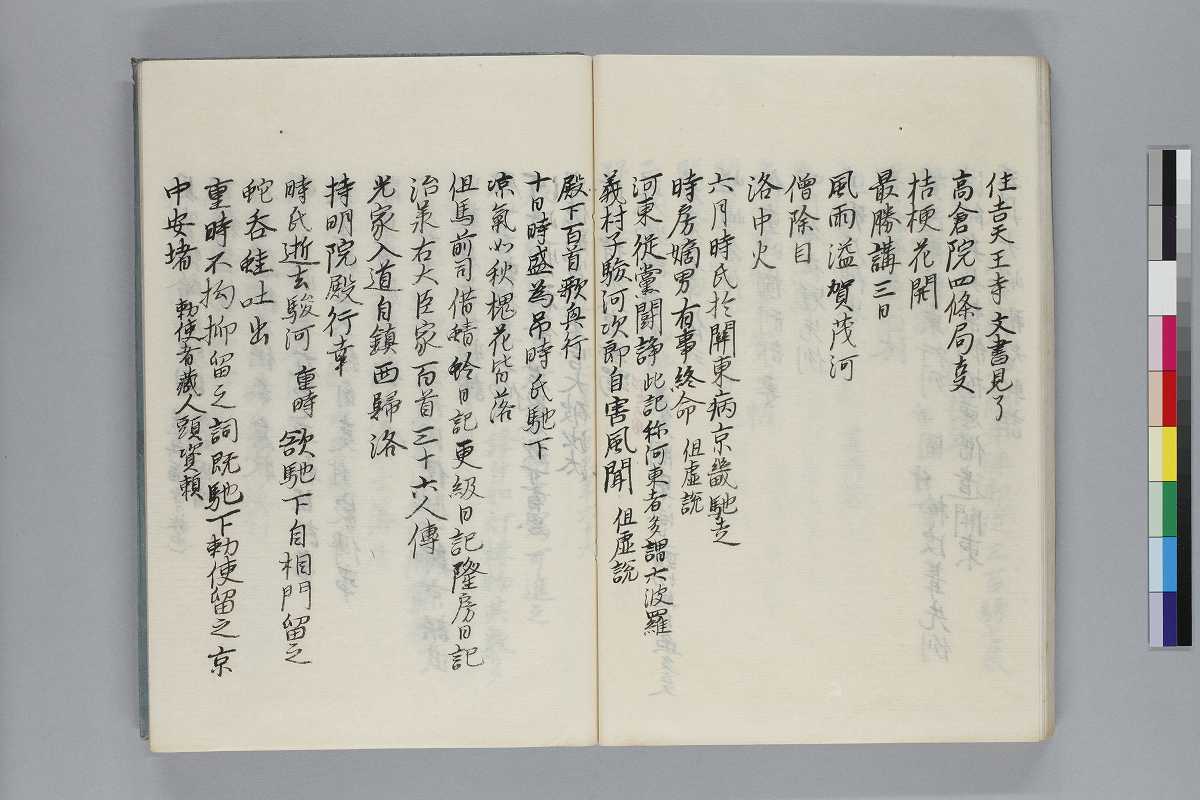 住吉天王寺 文書見了
高倉院四條局妻
桔梗花開
最勝講三日
風雨溢賀茂河
僧除目
洛中火
六月時氏於關東病京畿馳走
時房嫡男有事終命 但虚説
河東從黨鬪諍 此記称河東者多謂六波羅
義村子駿河次郎自害風聞 但虚説
殿下百首歌興行
十日時盛為弔時氏馳下
凉氣如秋槐花皆落
但馬前司借蜻蛉日記更級日記隆房日記
治承右大臣家百首三十六人傳
光家入道自鎮西歸洛
持明院殿行幸
時氏逝去駿河 重時 欲馳下自相門留之
蛇呑蛙吐出
重時不拘抑留之詞既馳下勅使留之京
中安堵 勅使者藏人頭資頼